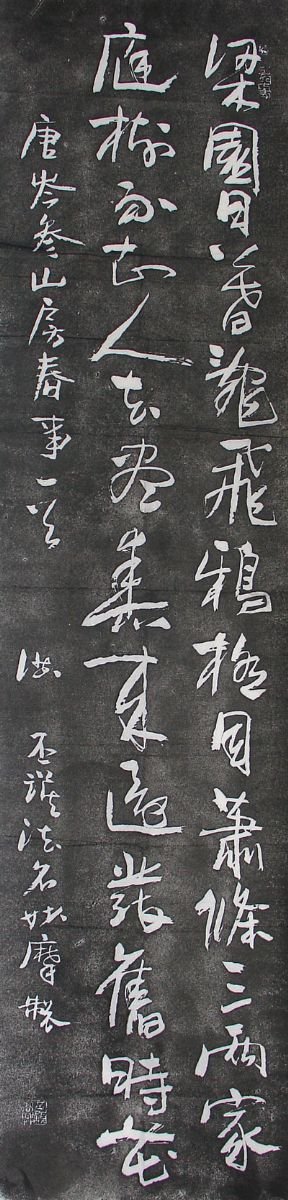 梁園日暮亂飛鴉極目蕭條三兩家
庭樹不知人去盡春來還發舊時花
唐岑參山房春事一首
丕謨法名妙摩製